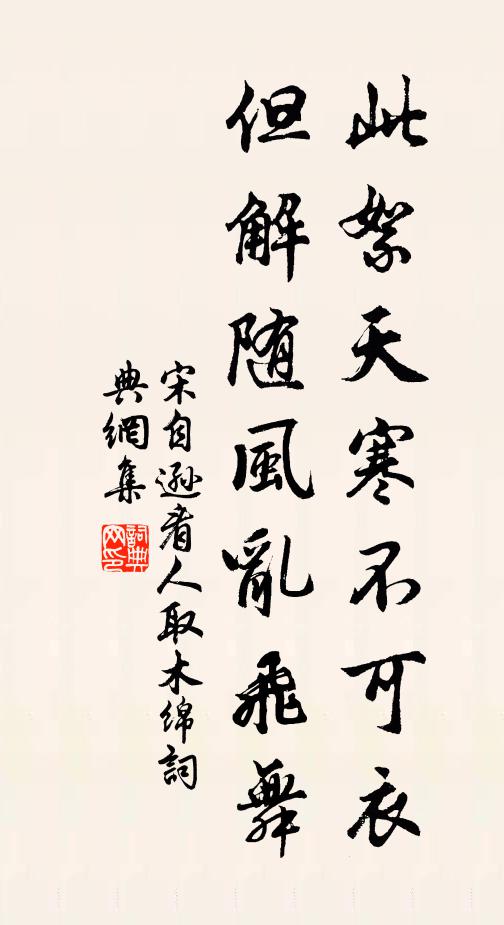 此絮天寒不可衣
但解随風亂飛舞
宋自遜看人取木绵詞
典網集
詞典
网印